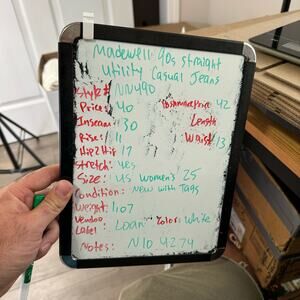 Madewell 90s straight
Utility Casual Jeans
Style# NN490
Price: 40 Poshmark Price 42
Inseam: 30 Length:
Rise: 11 Waist: 13
Hip2Hip 17
Stretch: Yes
Size: US Women's 25
Condition: New with Tags
Weight: 1.07
Vendoo Label: Loan Color: White
Notes: N10 4274